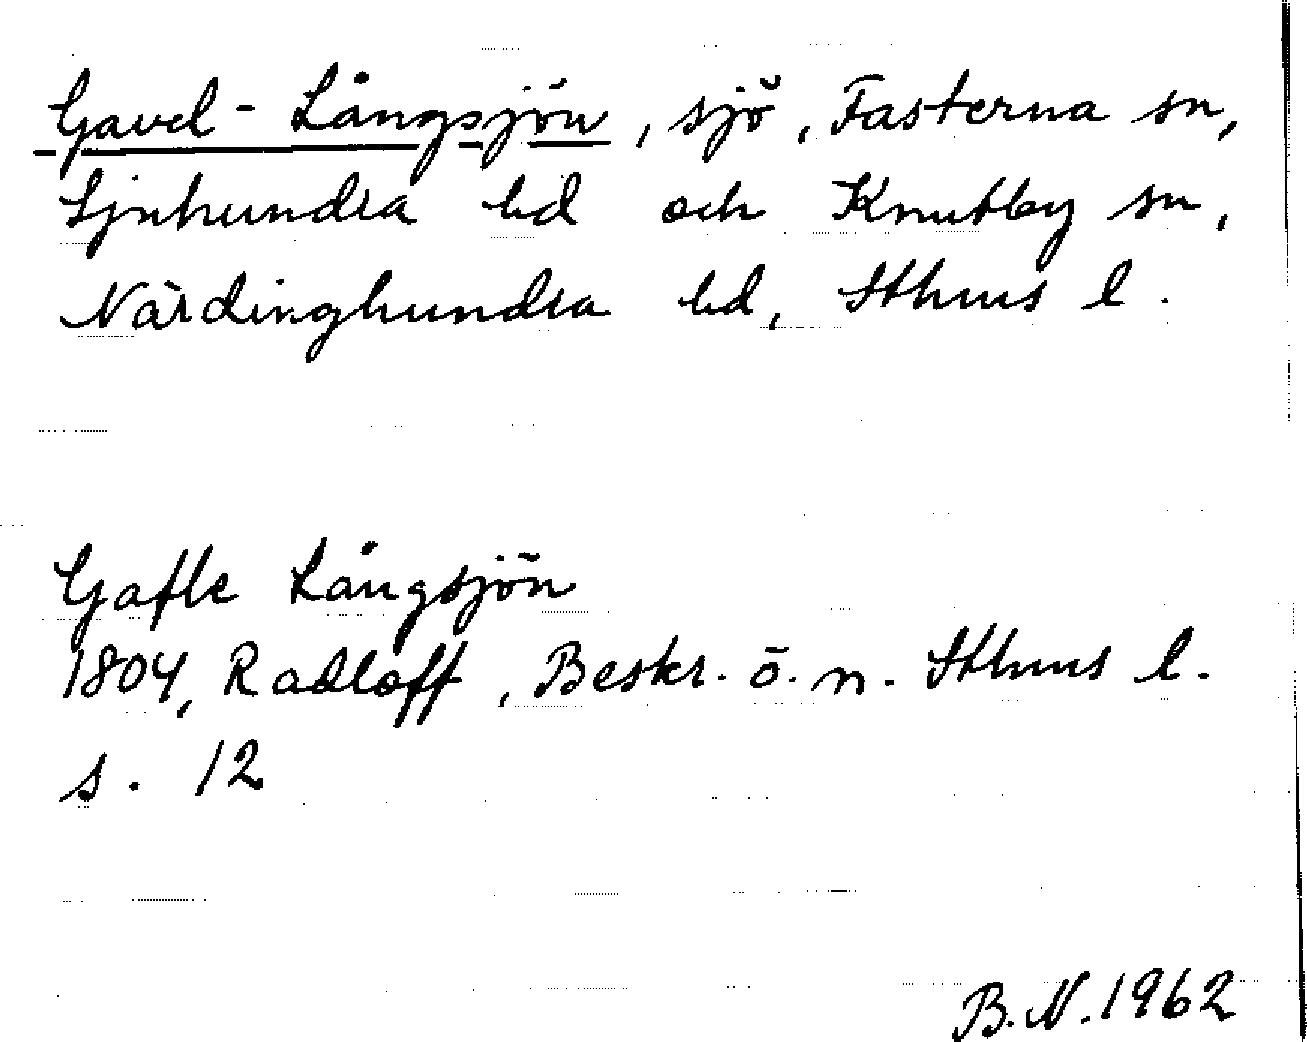 Gavel-Långsjön, sjö, Fasterna sn,
Sjuhundra hd och Knutby sn,
Närdinghundra hd, Sthms l.
Gafle Långsjön
1804, Radloff, Beskr. ö. n. Sthms l.
s. 12
B.N. 1962